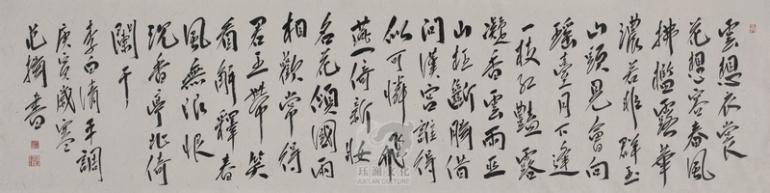 雲想衣裳
花想容春風
拂檻露華
濃若非群玉
山頭見會向
瑤臺月下逢
一枝紅艷露
凝香雲雨巫
山枉斷腸借
問漢宮誰得
似可憐飛
燕倚新妝
名花傾國兩
相歡常得
君王帶笑
看解釋春
風無限恨
沉香亭北倚
闌干
李白清平調
庚寅歲寒
書
文化
CULTURE